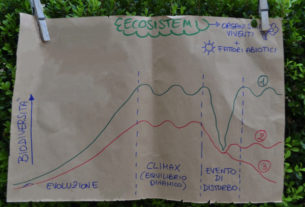 ECOSISTEMI
ORGANISMI
VIVENTI
+
FATTORI ABIOTICI
BIODIVERSITÀ
1
2
3
EVOLUZIONE
CLIMAX
(EQUILIBRIO
DINAMICO)
EVENTO
DI
DISTURBO